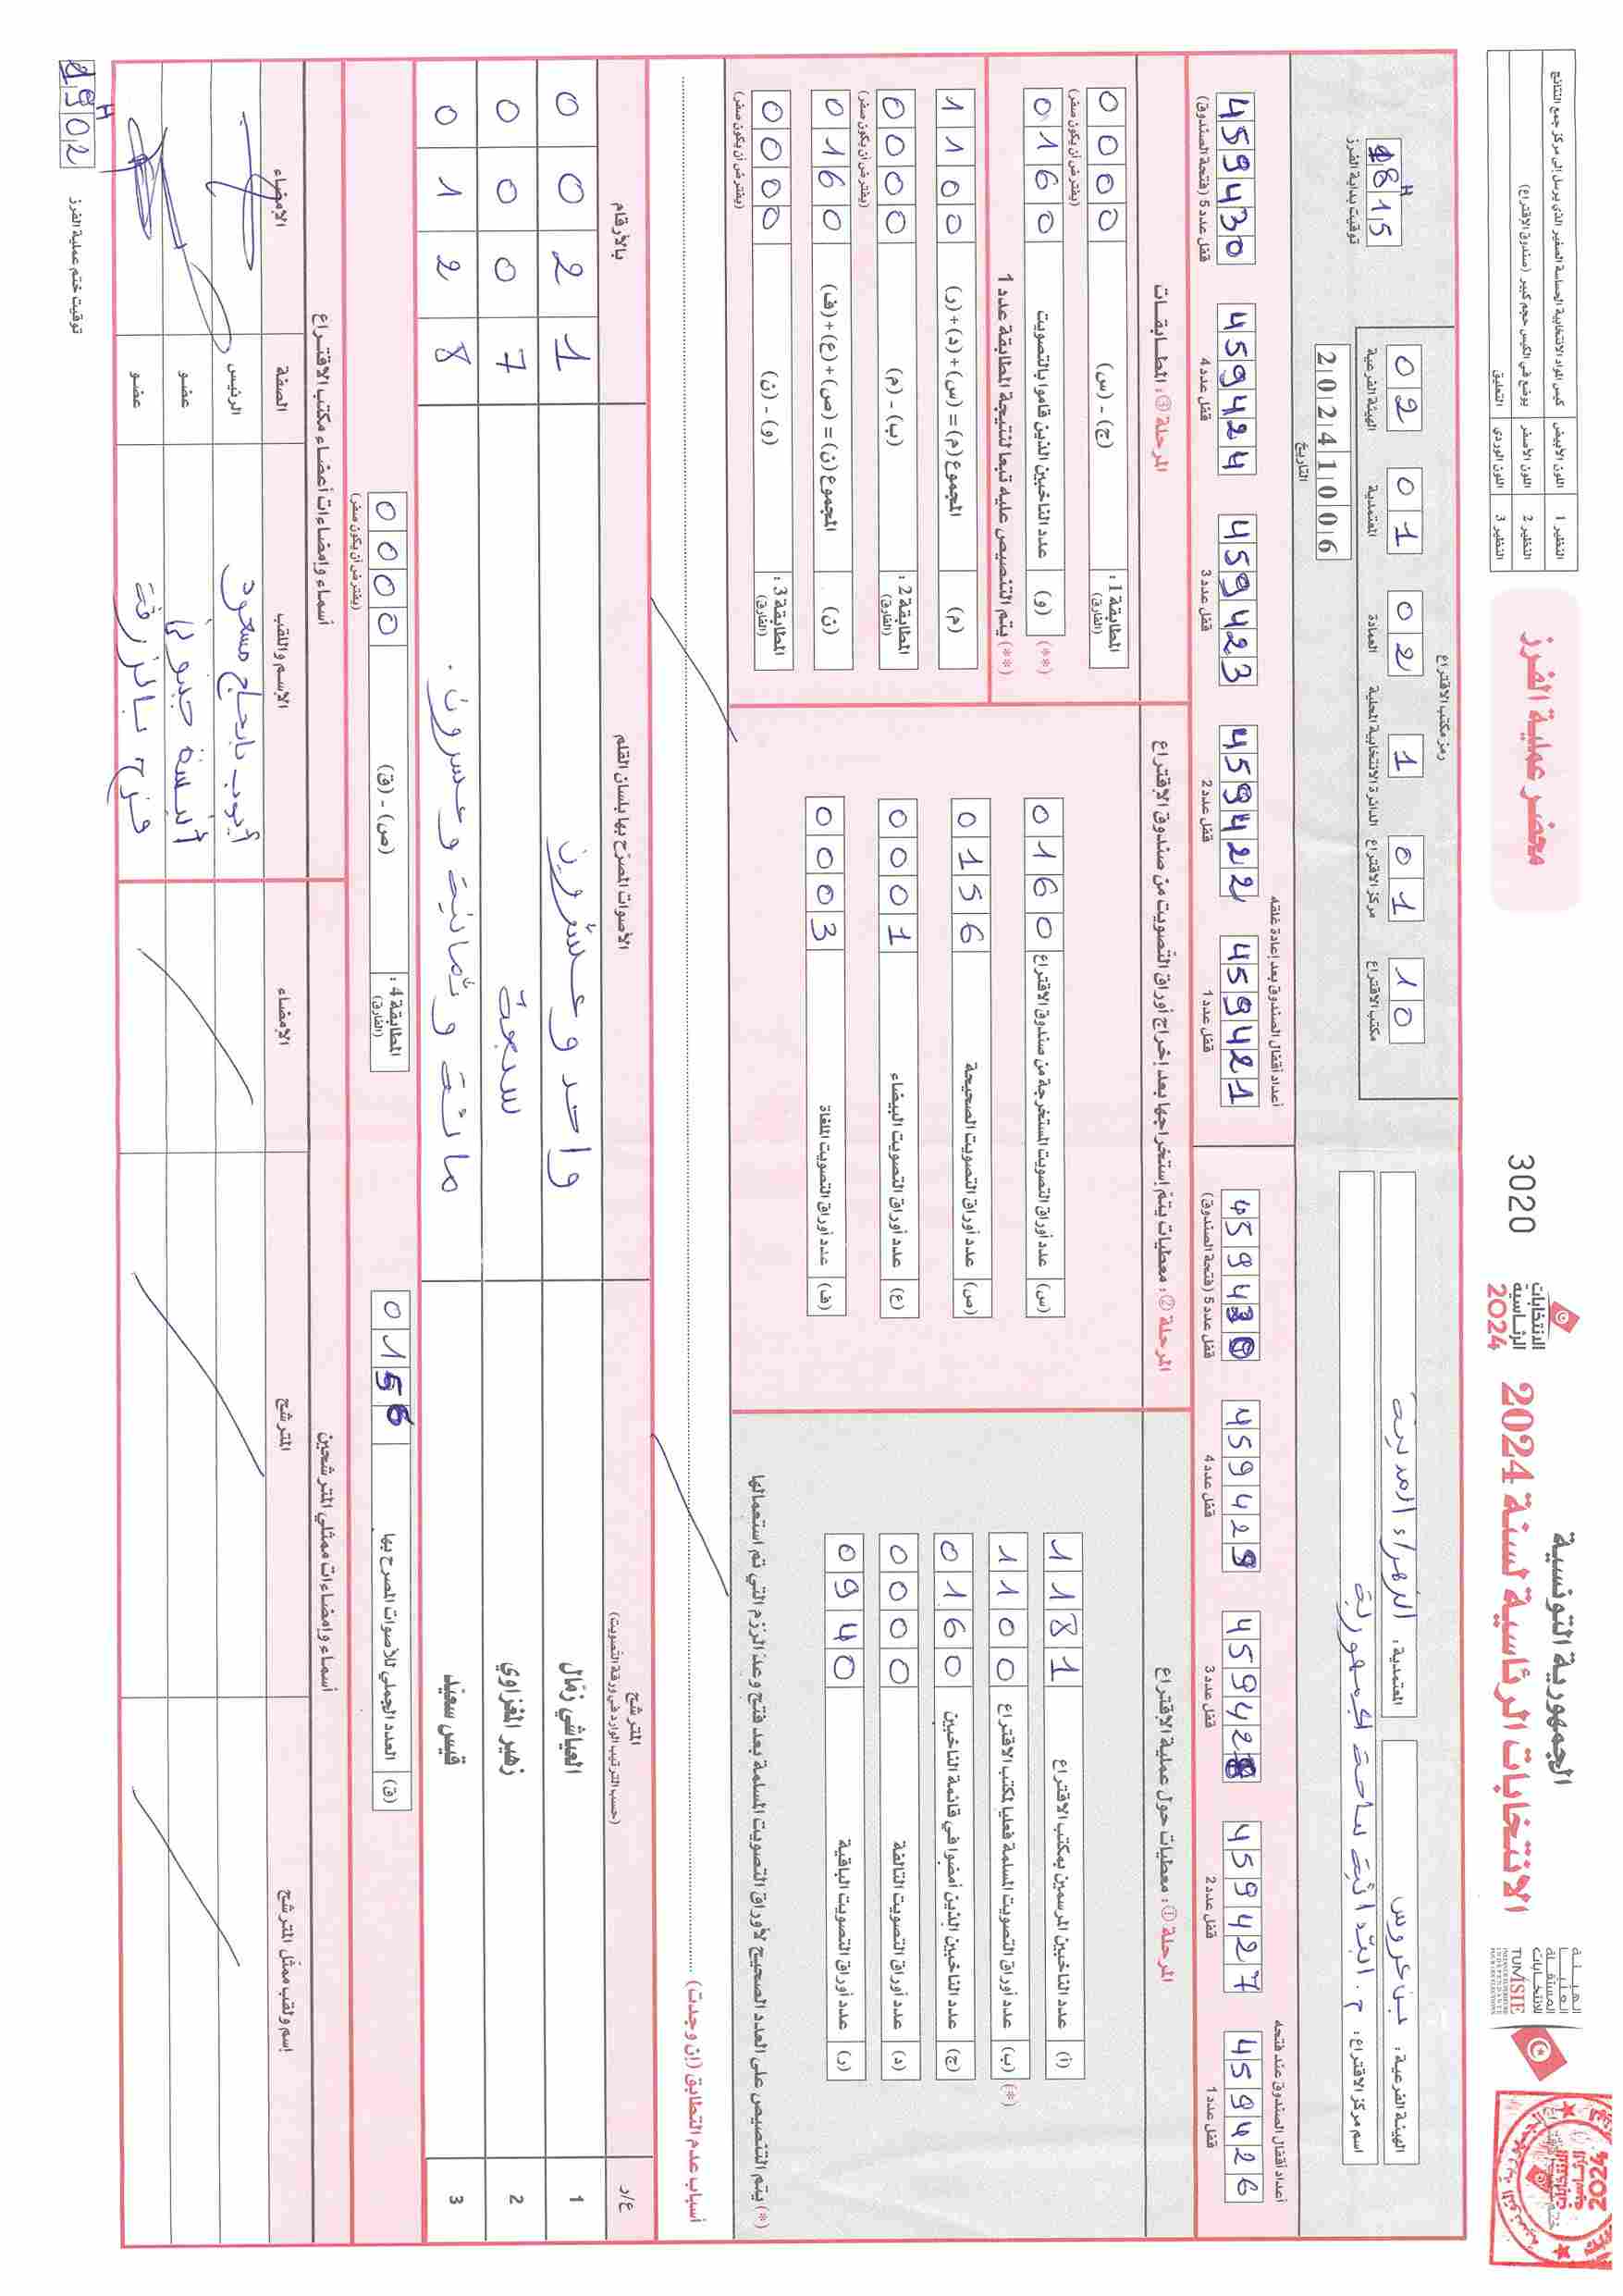 الجمهورية التونسية
الانتخابات الرئاسية لسنة 2024
الانتخابات
الرئاسية
2024
3020
محضر عملية الفرز
الهيئة
العليا
المستقلة
للانتخابات
TUNISIE
النظير 1 اللون الأبيض كيس المواد الانتخابية الحساسة الصغير الذي يرسل إلى مركز جمع النتائج
النظير 2 اللون الأصفر يوضع في الكيس حجم كبير (صندوق الاقتراع)
النظير 3 اللون الوردي التعليق
الهيئة الفرعية: بن عروس
المعتمدية: الزهراء المدينة
اسم مركز الاقتراع: م. ابتدائية ساحة الجمهورية
رمز مكتب الاقتراع
10 مكتب الاقتراع
01 مركز الاقتراع
1 الدائرة الانتخابية المحلية
02 العمادة
01 المعتمدية
02 الهيئة الفرعية
20241006
التاريخ
18H15
توقيت بداية الفرز
أعداد أقفال الصندوق عند فتحه
459426 قفل عدد 1
459427 قفل عدد 2
459428 قفل عدد 3
459429 قفل عدد 4
459430 قفل عدد 5 (فتحة الصندوق)
أعداد أقفال الصندوق بعد إعادة غلقه
459421 قفل عدد 1
459422 قفل عدد 2
459423 قفل عدد 3
459424 قفل عدد 4
459430 قفل عدد 5 (فتحة الصندوق)
المرحلة ①: معطيات حول عملية الاقتراع
(أ) عدد الناخبين المرسمين بمكتب الاقتراع 1181
(*) (ب) عدد أوراق التصويت المسلمة فعليا لمكتب الاقتراع 1100
(ج) عدد الناخبين الذين أمضوا في قائمة الناخبين 0160
(د) عدد أوراق التصويت التالفة 0000
(ر) عدد أوراق التصويت الباقية 0940
(*) يتم التنصيص على العدد الصحيح لأوراق التصويت المسلمة بعد فتح وعد الرزم التي تم استعمالها
المرحلة ②: معطيات يتم إستخراجها بعد إخراج أوراق التصويت من صندوق الاقتراع
(س) عدد أوراق التصويت المستخرجة من صندوق الاقتراع 0160
(ص) عدد أوراق التصويت الصحيحة 0156
(ع) عدد أوراق التصويت البيضاء 0001
(ف) عدد أوراق التصويت الملغاة 0003
المرحلة ③: المطابقات
المطابقة 1: (الفارق) (ج) - (س) 000
(يفترض أن يكون صفر)
(**) (و) عدد الناخبين الذين قاموا بالتصويت 0160
(**) يتم التنصيص عليه تبعا لنتيجة المطابقة عدد 1
(م) المجموع (م) = (س) + (د) + (ر) 1100
المطابقة 2: (الفارق) (ب) - (م) 0000
(يفترض أن يكون صفر)
(ن) المجموع (ن) = (ص) + (ع) + (ف) 0160
المطابقة 3: (الفارق) (و) - (ن) 0000
(يفترض أن يكون صفر)
أسباب عدم التطابق (إن وجدت)
ع/ر المترشح (حسب الترتيب الوارد في ورقة التصويت) الأصوات المصرّح بها بلسان القلم بالأرقام
1 العياشي زمّال واحد وعشرون 0021
2 زهير المغزاوي سبعة 0007
3 قيس سعيّد مائة وثمانية وعشرون. 0128
(ق) العدد الجملي للأصوات المصرح بها 0156
المطابقة 4: (الفارق) (ص) - (ق) 0000
(يفترض أن يكون صفر)
أسماء وإمضاءات ممثلي المترشحين
إسم ولقب ممثل المترشح المترشح الإمضاء
أسماء وإمضاءات أعضاء مكتب الاقتراع
الاسم واللقب الصفة الامضاء
أيوب بلحاج مسعود الرئيس
عضو
عضو
توقيت ختم عملية الفرز
19H02